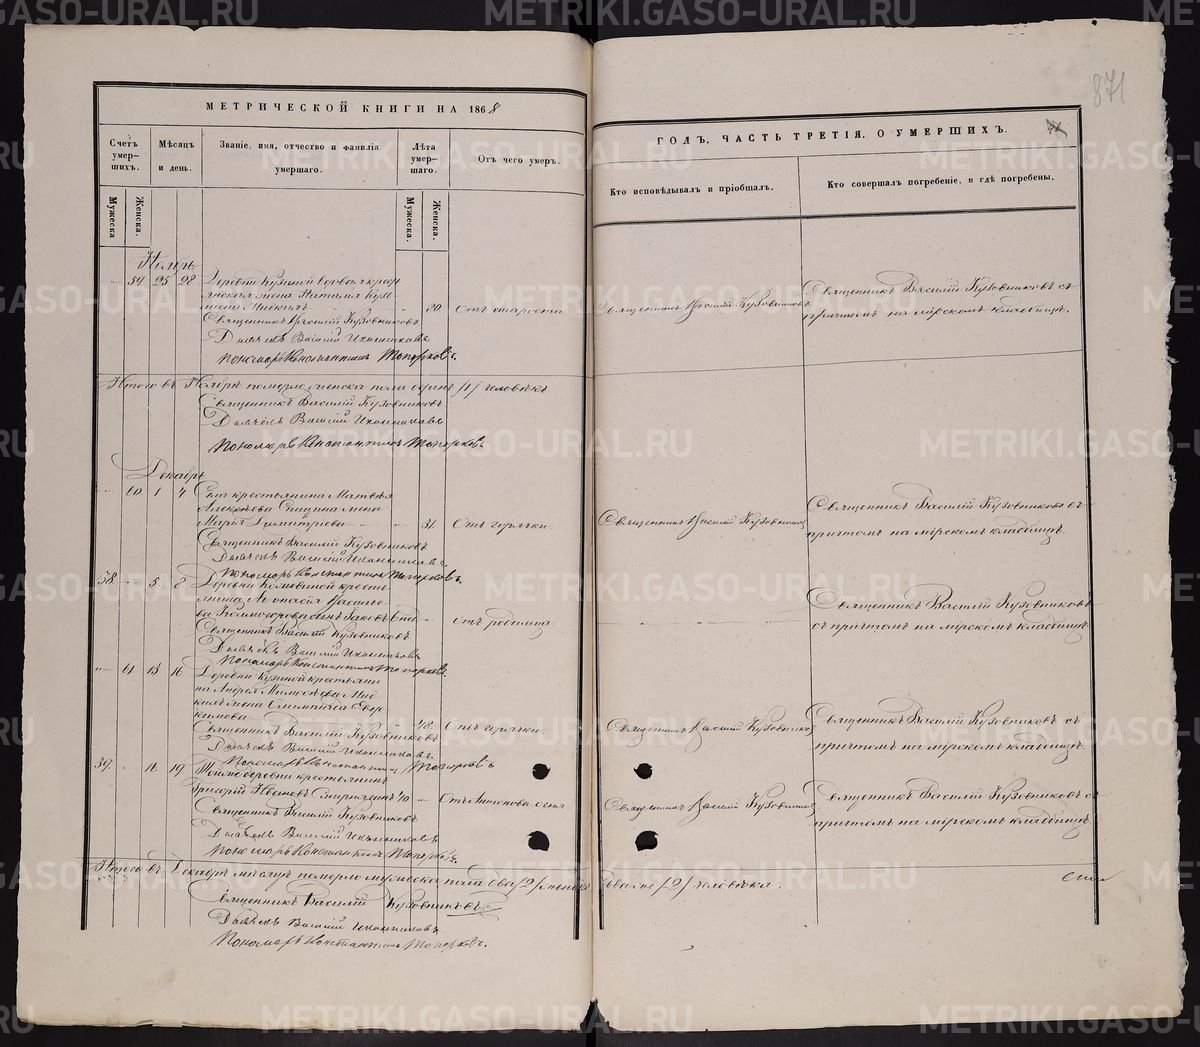 МЕТРИЧЕСКОЙ КНИГИ НА 1868
ГОДЪ, ЧАСТЬ ТРЕТІЯ, О УМЕРШИХЪ.
871
Счетъ умер- шихъ.
Мѣсяцъ и день.
Званіе, имя, отчество и фамилія умершаго.
Лѣта умер- шаго.
Отъ чего умеръ.
Кто исповѣдывалъ и пріобщалъ.
Кто совершалъ погребеніе, и гдѣ погребены.
Мужеска
Женска.
Мужеска.
Женска.
Ноябрь
59 25 28 Деревни Кузиной
жена Наталья
80 Отъ старости
Священникъ Василій Кузовниковъ
Священникъ Василій Кузовниковъ съ
причтомъ на мірскомъ кладбищѣ.
Священникъ Василій Кузовниковъ
Дьячекъ Василій Иконниковъ
Пономарь Константинъ Топорковъ.
Итого въ Ноябрѣ померло женска пола одинъ /1/ человѣкъ
Священникъ Василій Кузовниковъ
Дьячекъ Василій Иконниковъ
Пономарь Константинъ Топорковъ
Декабрь
60 1 4 Села крестьянина Матвѣя
Алексѣева жена
Марія Димитріева
31 Отъ горячки
Священникъ Василій Кузовниковъ
Священникъ Василій Кузовниковъ съ
причтомъ на мірскомъ кладбищѣ.
Священникъ Василій Кузовниковъ
Дьячекъ Василій Иконниковъ.
Пономарь Константинъ Топорковъ.
38 5 8 Деревни кресть-
янина Аѳанасія Василье-
ва сынъ Яковъ
Отъ родимца
Священникъ Василій Кузовниковъ
съ причтомъ на мірскомъ кладбищѣ.
Священникъ Василій Кузовниковъ
Дьячекъ Василій Иконниковъ
Пономарь Константинъ Топорковъ.
61 13 16 Деревни Кузиной крестьяни-
на Андрея жена Олимпіада
48 Отъ горячки
Священникъ Василій Кузовниковъ
Священникъ Василій Кузовниковъ съ
причтомъ на мірскомъ кладбищѣ.
Священникъ Василій Кузовниковъ
Дьячекъ Василій Иконниковъ.
Пономарь Константинъ Топорковъ
39 16 19 Той же деревни крестьянинъ
Григорій Ивановъ
40 Отъ Антонова огня
Священникъ Василій Кузовниковъ
Священникъ Василій Кузовниковъ съ
причтомъ на мірскомъ кладбищѣ.
Священникъ Василій Кузовниковъ
Дьячекъ Василій Иконниковъ
Пономарь Константинъ Топорковъ.
Итого въ Декабрѣ мѣсяцѣ померло мужеска пола два /2/ женска двое /2/ человѣка.
Священникъ Василій Кузовниковъ
Дьячекъ Василій Иконниковъ
Пономарь Константинъ Топорковъ.
METRIKI.GASO-URAL.RU